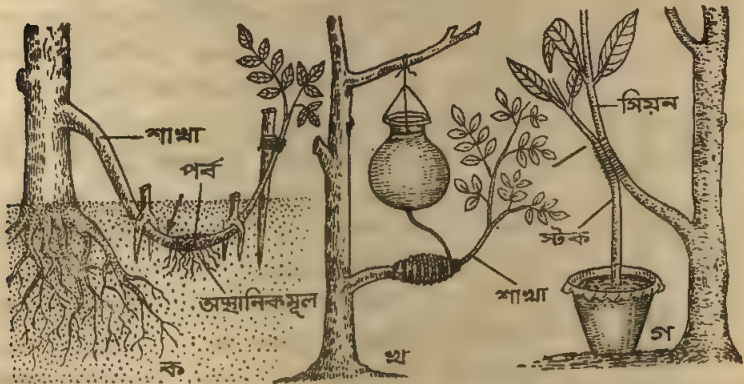 শাখা
পর্ব
অস্থানিকমূল
ক
শাখা
খ
সিয়ন
স্টক
গ